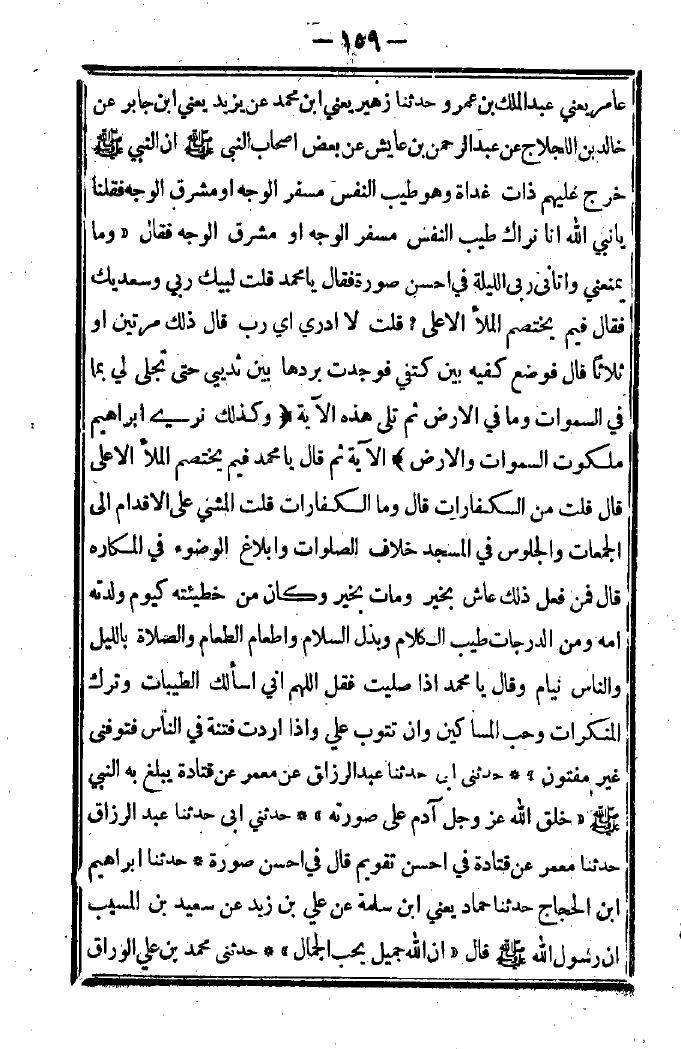 — ١٥٩ —
عامر يعني عبد الملك بن عمرو حدثنا زهير يعني ابن محمد عن يزيد يعني ابن جابر عن
خالد بن اللجلاج عن عبد الرحمن بن عايش عن بعض اصحاب النبي ﷺ ان النبي ﷺ
خرج عليهم ذات غداة وهو طيب النفس مسفر الوجه او مشرق الوجه فقلنا
يانبي الله انا نراك طيب النفس مسفر الوجه او مشرق الوجه فقال « وما
يمنعني واتاني ربى الليلة في احسن صورة فقال يا محمد قلت لبيك ربي وسعديك
فقال فيم يختصم الملأ الاعلى ? قلت لا ادري اي رب قال ذلك مرتين او
ثلاثا قال فوضع كفيه بين كتفي فوجدت بردها بين ثديي حتى تجلى لي بما
في السموات وما في الارض ثم تلى هذه الآية ﴿ وكذلك نري ابراهيم
ملكوت السموات والارض ﴾ الآية ثم قال يا محمد فيم يختصم الملأ الاعلى
قال قلت من الكفارات قال وما الكفارات قلت المشي على الاقدام الى
الجمعات والجلوس في المسجد خلاف الصلوات وابلاغ الوضوء في المكاره
قال فمن فعل ذلك عاش بخير ومات بخير وكان من خطيئته كيوم ولدته
امه ومن الدرجات طيب الكلام وبذل السلام واطعام الطعام والصلاة بالليل
والناس نيام وقال يا محمد اذا صليت فقل اللهم اني اسألك الطيبات وترك
المنكرات وحب المساكين وان تتوب علي واذا اردت فتنة في الناس فتوفنى
غير مفتون » * حدثنى ابى حدثنا عبد الرزاق عن معمر عن قتادة يبلغ به النبي
ﷺ « خلق الله عز وجل آدم على صورته » * حدثني ابى حدثنا عبد الرزاق
حدثنا معمر عن قتادة في احسن تقويم قال في احسن صورة * حدثنا ابراهيم
ابن الحجاج حدثنا حماد يعني ابن سلمة عن علي بن زيد عن سعيد بن المسيب
ان رسول الله ﷺ قال « ان الله جميل يحب الجمال » * حدثنى محمد بن علي الوراق